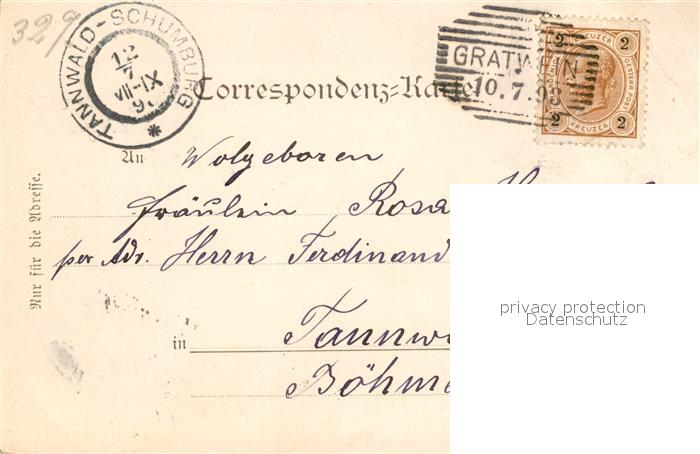 329
TANNWALD-SCHUMBURG
12
7
VII-IX
9
GRATWEIN
10.7.98
2 KREUZER 2
2 KREUZER 2
Correspondenz-Karte
An
Wolgeboren
Fräulein Rosa
per Adr. Herrn Ferdinand
in Tannw
Böhm
Nur für die Adresse.
privacy protection
Datenschutz